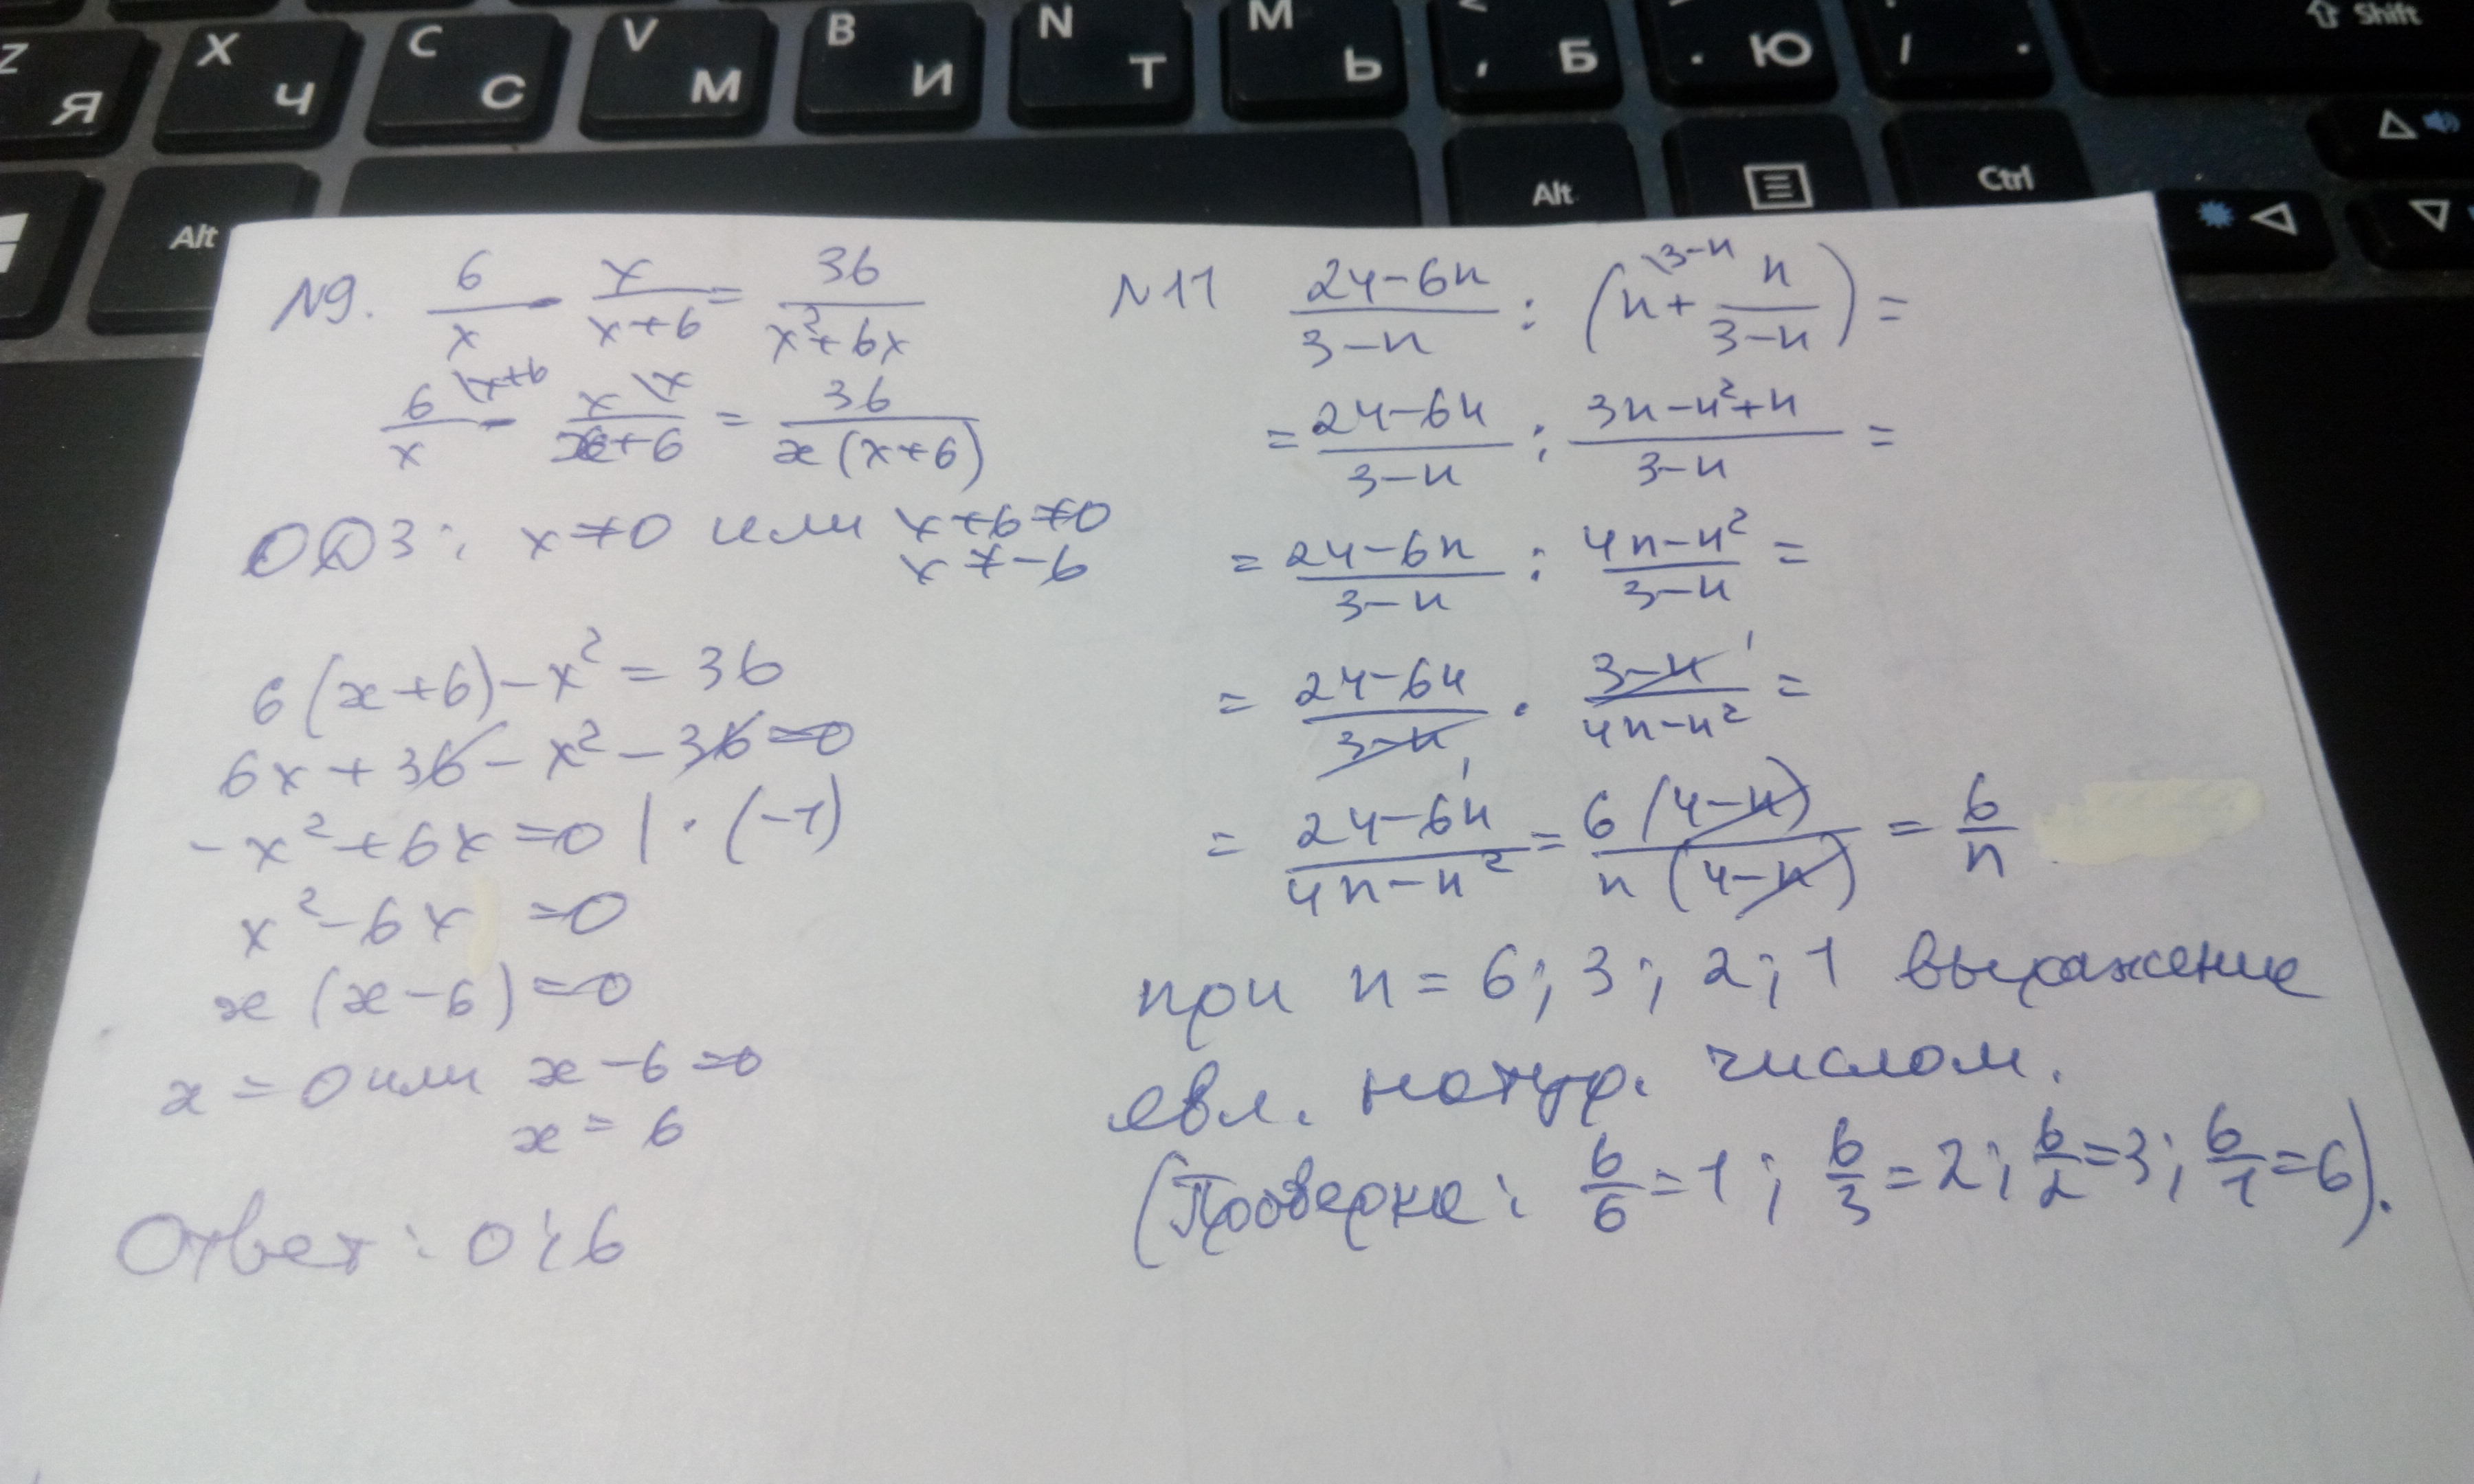 Z Я X Ч C С V М B И N Т M Ь < , Б . Ю / . Shift
Alt Alt Ctrl
N9. 6/x - x/(x+6) = 36/(x²+6x)
6/x \x+6 - x/(x+6) \x = 36/(x(x+6))
ОДЗ: x≠0 или x+6≠0
x≠-6
6(x+6)-x²=36
6x+36-x²-36=0
-x²+6x=0 | · (-1)
x²-6x =0
x(x-6)=0
x=0 или x-6=0
x=6
Ответ: 0;6
N11 (24-6n)/(3-n) : (n \3-n + n/(3-n)) =
= (24-6n)/(3-n) : (3n-n²+n)/(3-n) =
= (24-6n)/(3-n) : (4n-n²)/(3-n) =
= (24-6n)/(3-n) 1 · (3-n) 1/(4n-n²) =
= (24-6n)/(4n-n²) = 6(4-n)/(n(4-n)) = 6/n
при n=6; 3; 2; 1 выражение
явл. натур. числом.
(Проверка: 6/6=1; 6/3=2; 6/2=3; 6/1=6).